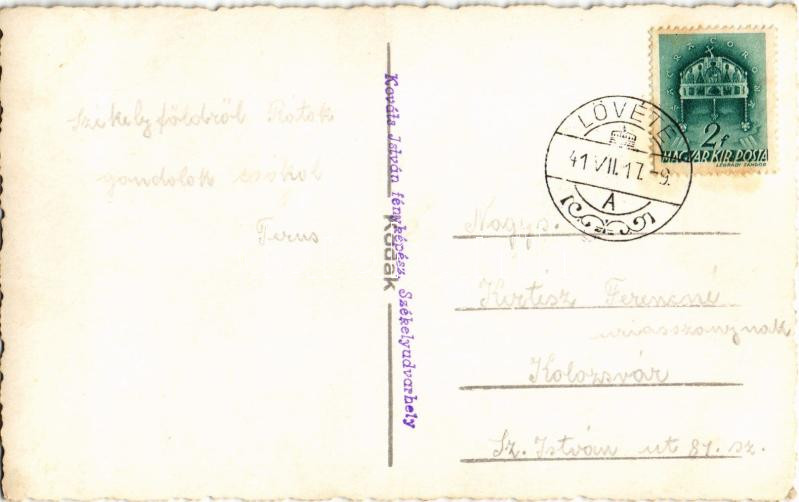 Székelyföldről Rátok
gondolok csókol
Terus
Kováts István fényképész, Székelyudvarhely
Kodak
SACRA CORONA
2f
MAGYAR KIR. POSTA
LÉGRÁDY SÁNDOR
LÖVÉTE
41 VII.17.-9.
A
Nagys.
Kertész Ferencné
uriasszonynak
Kolozsvár
Sz. István ut 81. sz.